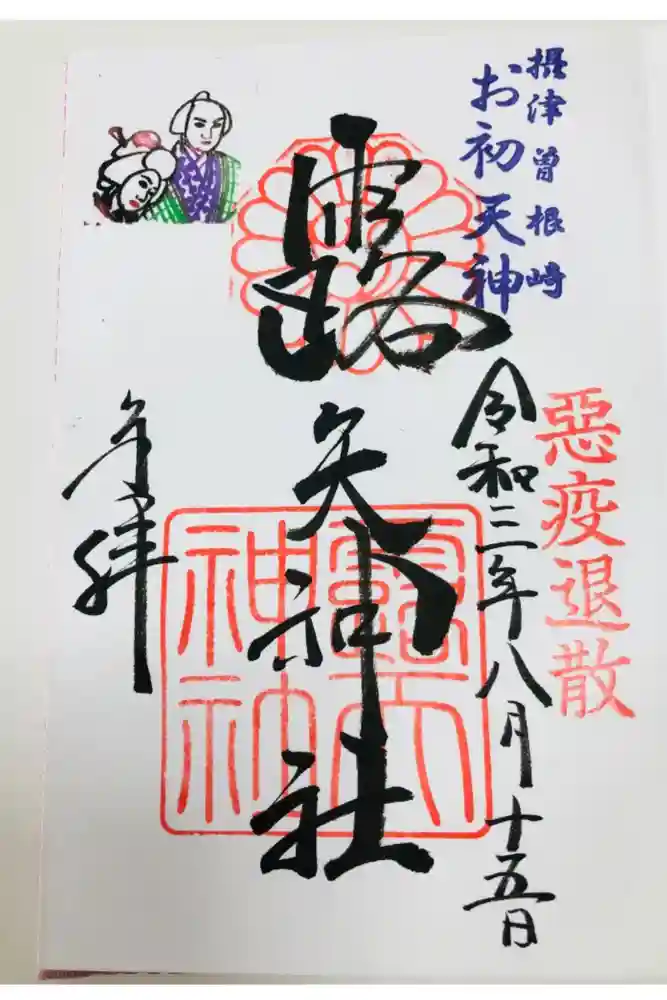 摂津曽根崎
お初天神
悪疫退散
令和三年八月十五日
露天神社
奉拝
露天
神社